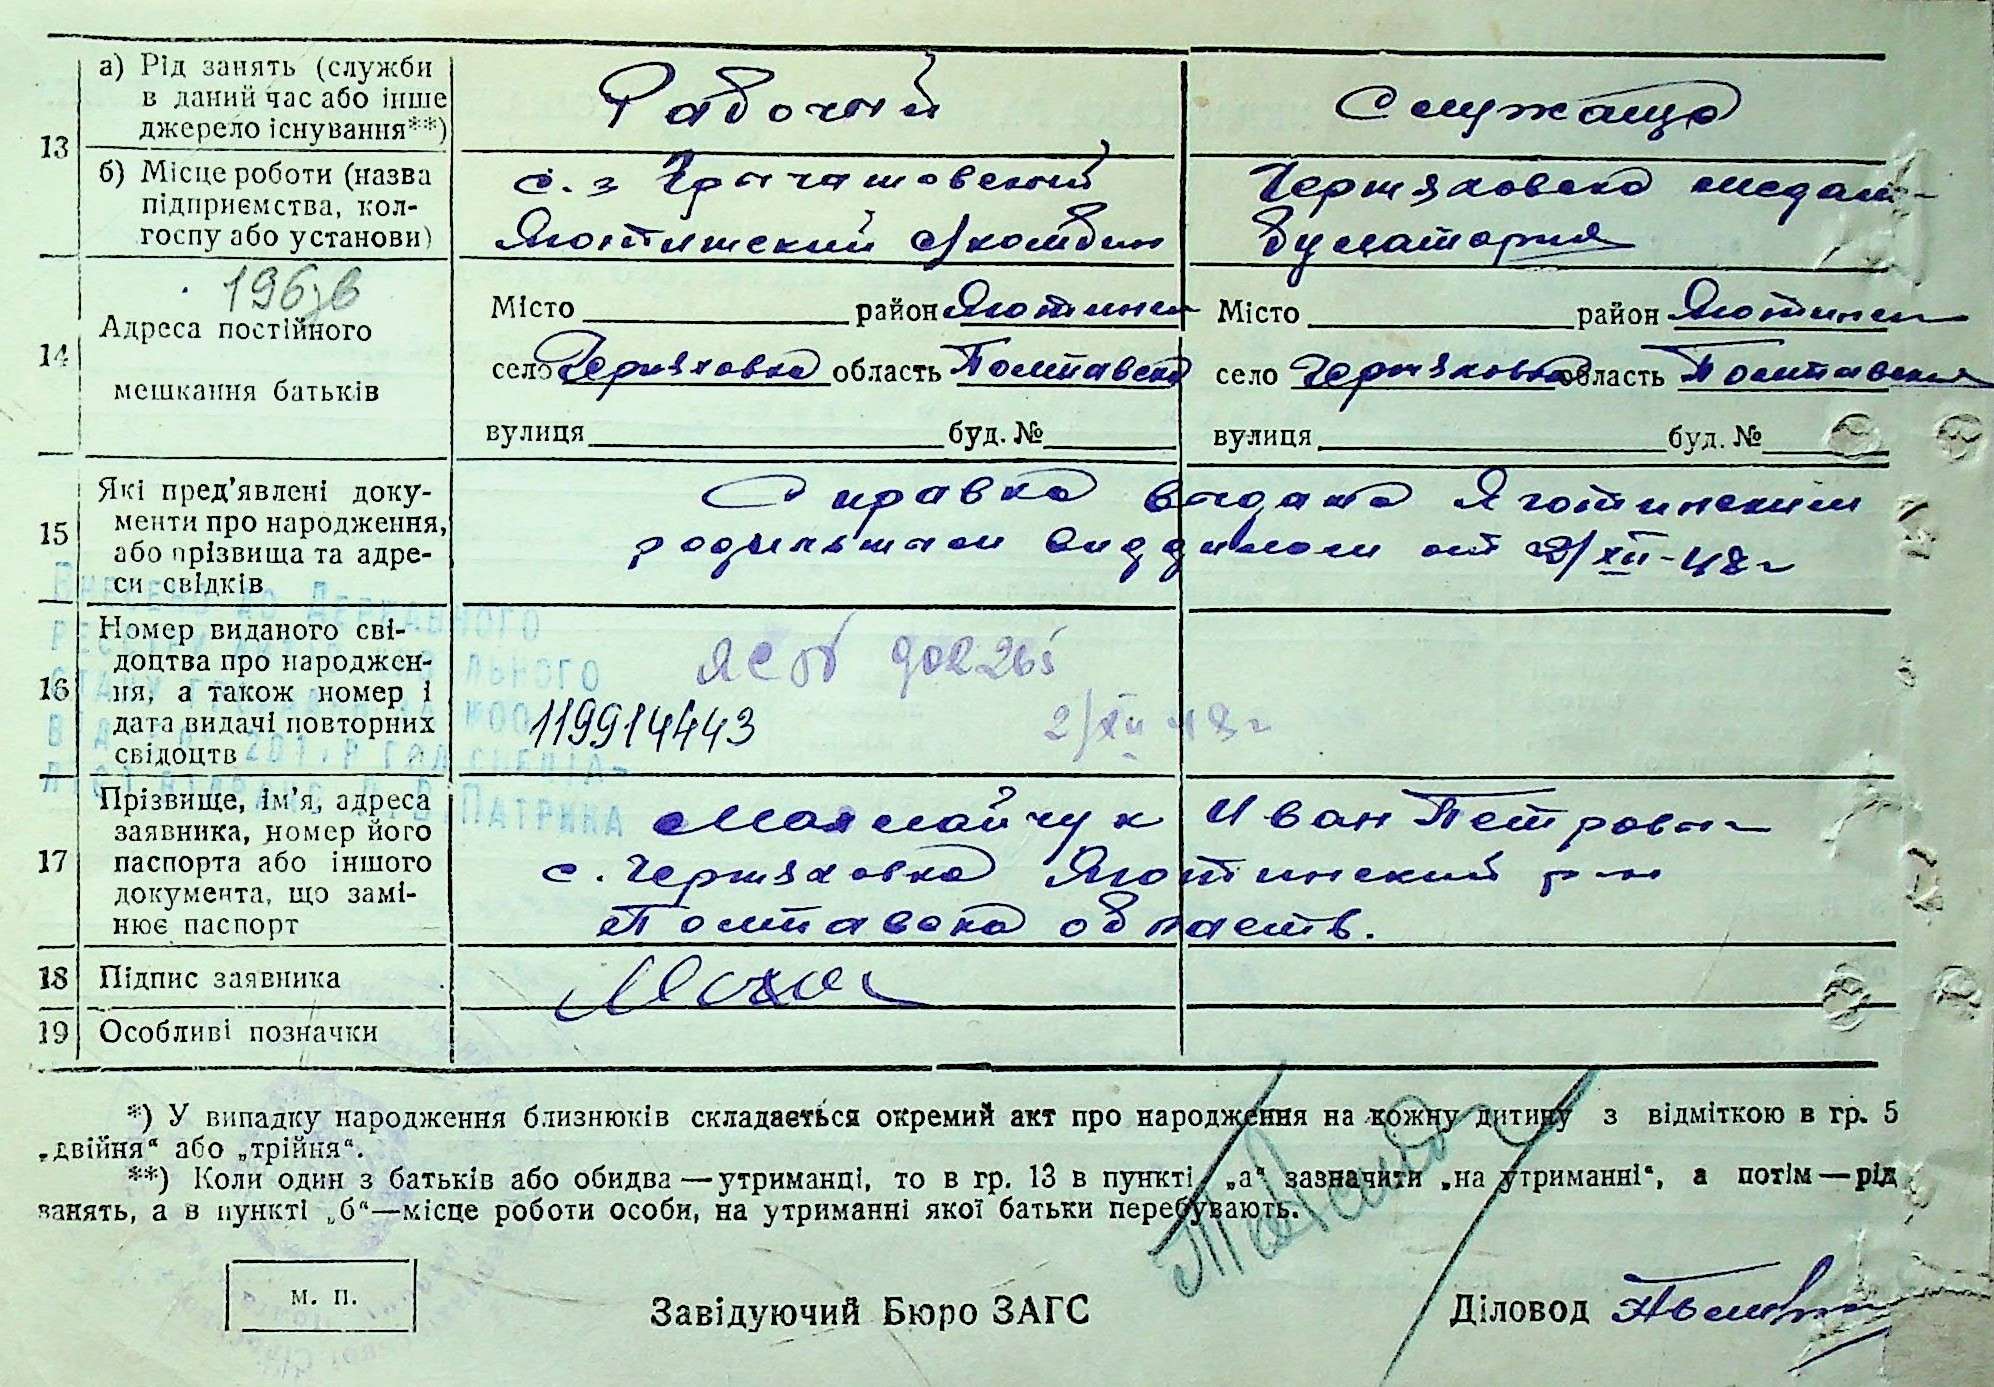 13
а) Рід занять (служби
в даний час або інше
джерело існування**)
Рабочий
Служаща
б) Місце роботи (назва
підприємства, кол-
госпу або установи)
с. з
Яготинский с/комбин
Черняховска медам-
булатория
14
Адреса постійного
мешкання батьків
Місто район Яготинск
село Черняховка область Полтавска
вулиця буд. №
Місто район Яготинск
село Черняховка область Полтавская
вулиця буд. №
15
Які пред'явлені доку-
менти про народження,
або прізвища та адре-
си свідків
Справка видана Яготинским
родильным от 2/XII-48 г
16
Номер виданого сві-
доцтва про народжен-
ня, а також номер і
дата видачі повторних
свідоцтв
902265
119914443
2/XII 48 г
17
Прізвище, ім'я, адреса
заявника, номер його
паспорта або іншого
документа, що замі-
нює паспорт
Иван Петрович
с. Черняховка Яготинский р-н
Полтавска область.
18
Підпис заявника
19
Особливі позначки
*) У випадку народження близнюків складається окремий акт про народження на кожну дитину з відміткою в гр. 5
„двійня“ або „трійня“.
**) Коли один з батьків або обидва—утриманці, то в гр. 13 в пункті „а“ зазначити „на утриманні“, а потім—рід
занять, а в пункті „б“—місце роботи особи, на утриманні якої батьки перебувають.
м. п.
Завідуючий Бюро ЗАГС
Діловод